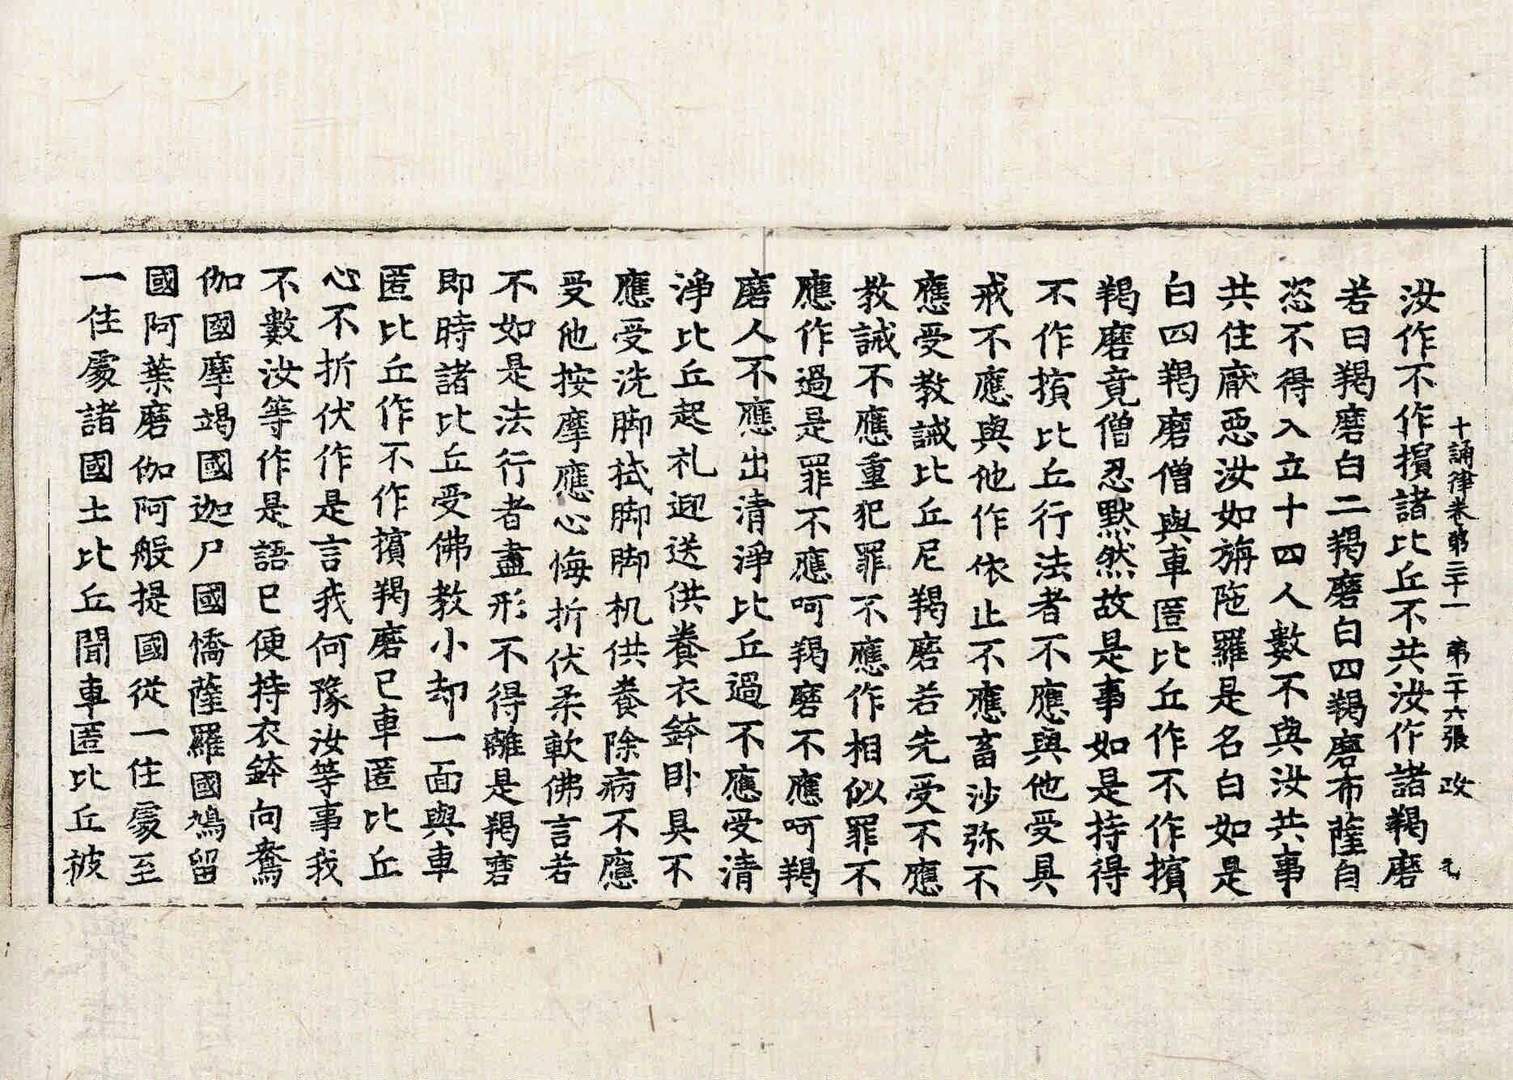 十誦律卷第三十一 第二十六張 改 元
汝作不作擯諸比丘不共汝作諸羯磨
若日羯磨白二羯磨白四羯磨布薩自
恣不得入立十四人數不與汝共事
共住厭惡汝如旃陁羅是名白如是
白四羯磨僧與車匿比丘作不作擯
羯磨竟僧忍默然故是事如是持得
不作擯比丘行法者不應與他受具
戒不應與他作依止不應畜沙弥不
應受教誡比丘尼羯磨若先受不應
教誡不應重犯罪不應作相似罪不
應作過是罪不應呵羯磨不應呵羯
磨人不應出清淨比丘過不應受清
淨比丘起礼迎送供養衣鉢卧具不
應受洗脚拭脚脚机供養除病不應
受他按摩應心悔折伏柔軟佛言若
不如是法行者盡形不得離是羯磨
即時諸比丘受佛教小却一面與車
匿比丘作不作擯羯磨已車匿比丘
心不折伏作是言我何豫汝等事我
不數汝等作是語已便持衣鉢向鴦
伽國摩竭國迦尸國憍薩羅國鳩留
國阿葉磨伽阿般提國從一住處至
一住處諸國土比丘聞車匿比丘被